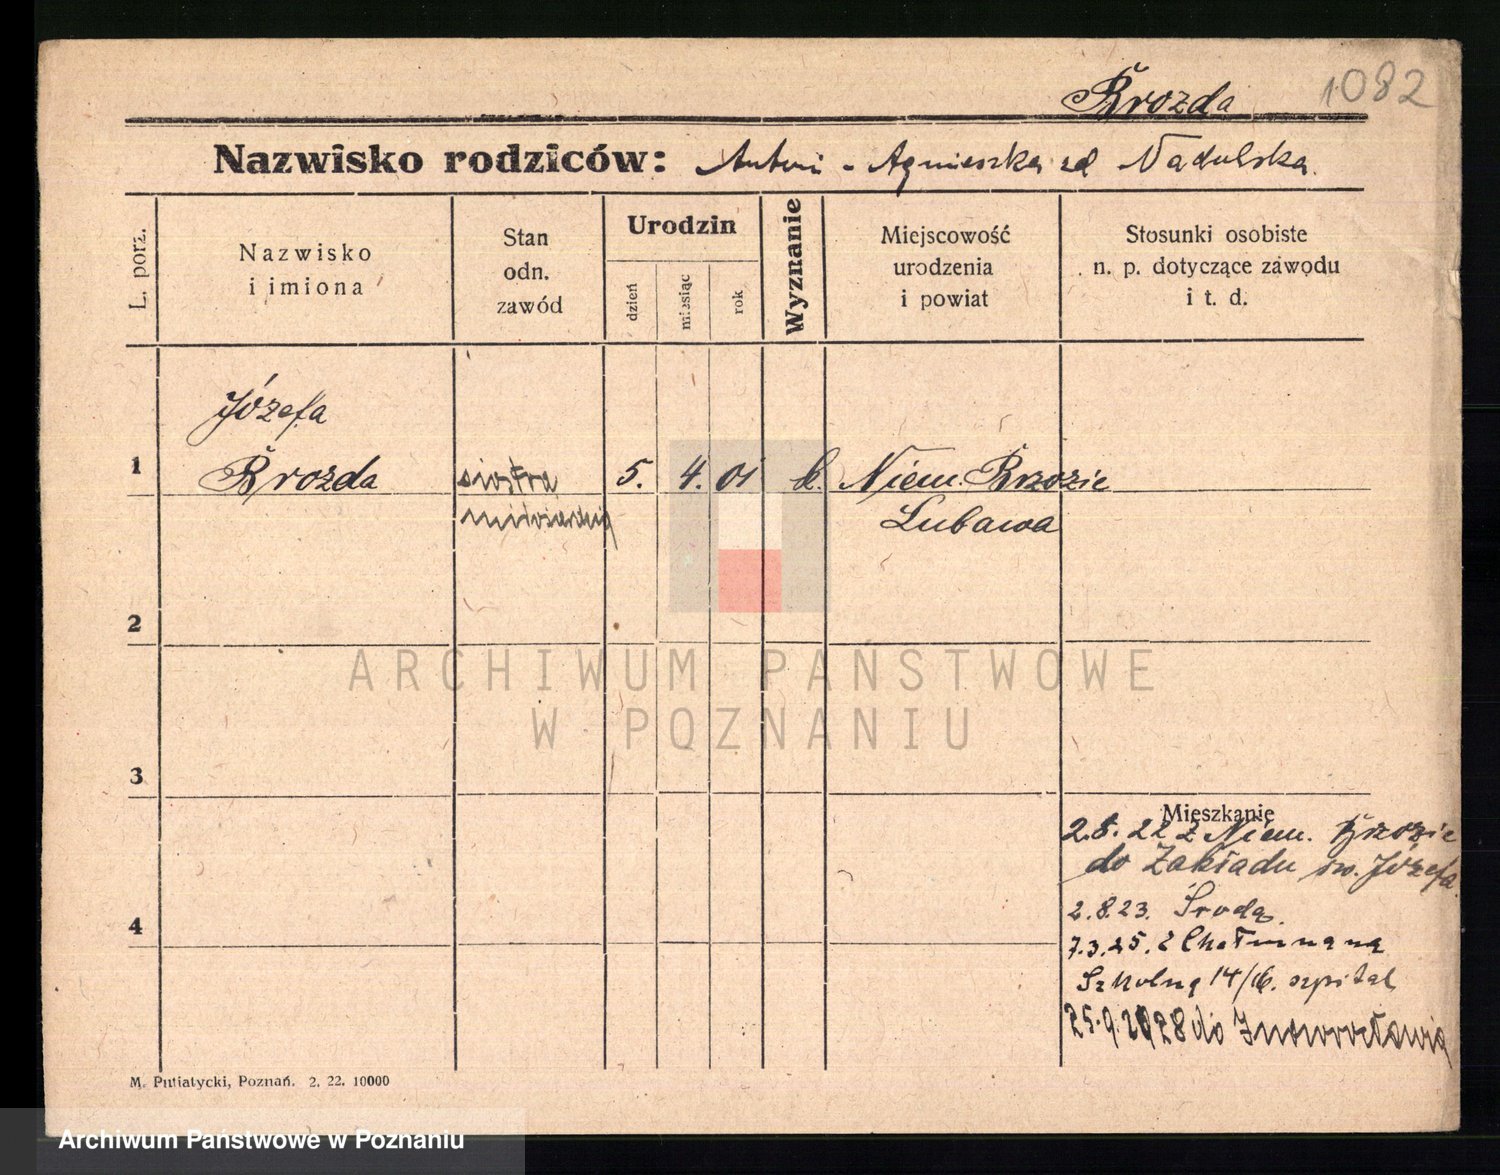 Brozda 1082
Nazwisko rodziców: Antoni - Agnieszka zd Nadolska.
L. porz.
Nazwisko
i imiona
Stan
odn.
zawód
Urodzin
dzień
miesiąc
rok
Wyznanie
Miejscowość
urodzenia
i powiat
Stosunki osobiste
n. p. dotyczące zawodu
i t. d.
Józefa
1 Brozda siostra 5. 4. 01 k. Niem. Brzozie
miłosierdzia Lubawa
2
ARCHIWUM PAŃSTWOWE
W POZNANIU
3
Mieszkanie
2.8.22 z Niem. Brzozie
do Zakładu św. Józefa
2.8.23. Środa
4
7.3.25. z Chełmna na
Szkolną 14/16. szpital
25.9.1928 do Inowrocławia
M. Putiatycki, Poznań. 2. 22. 10000
Archiwum Państwowe w Poznaniu